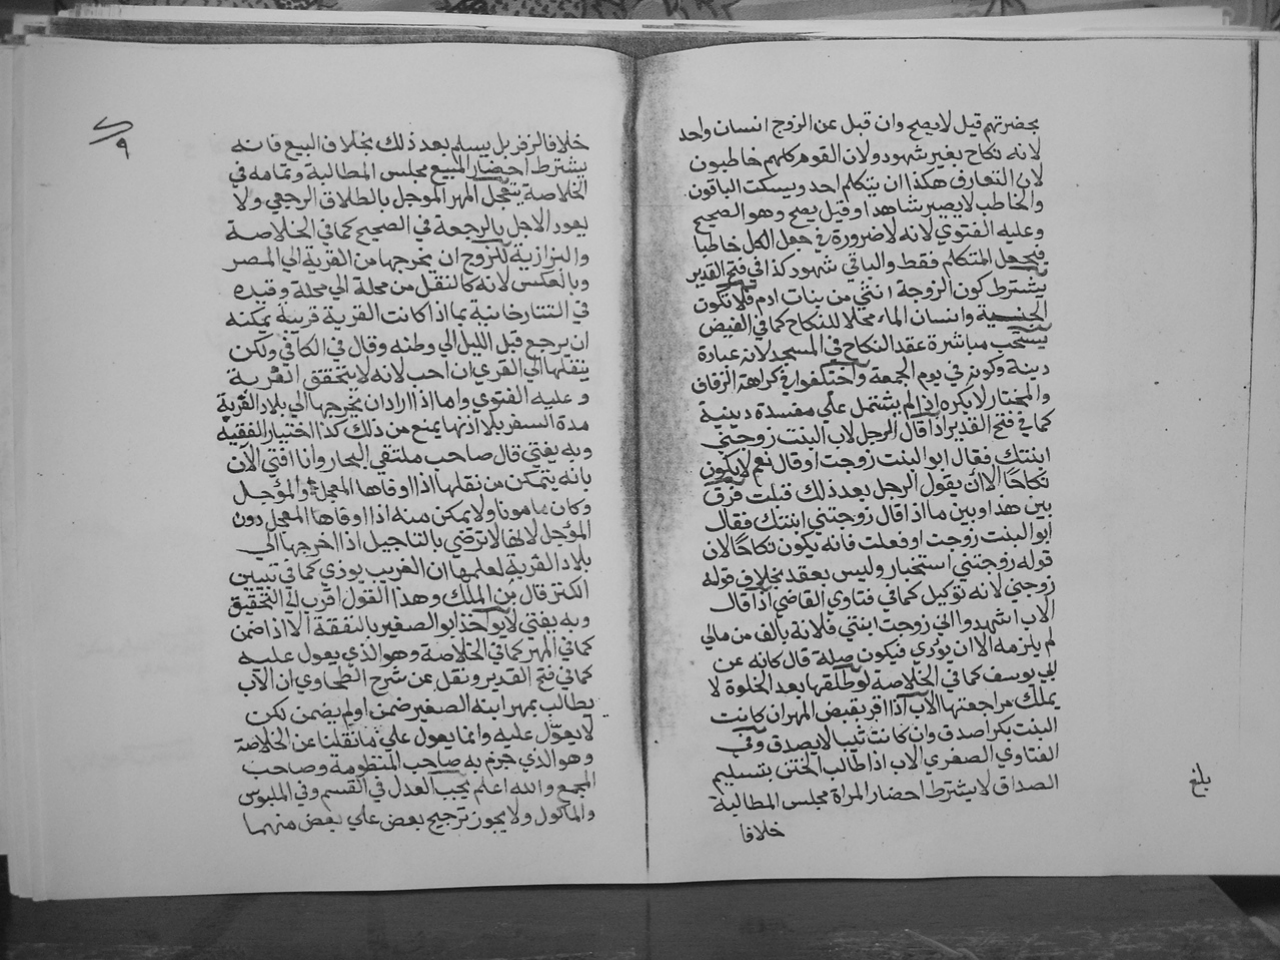 بحضرتهم قيل لا يصح وان قبل عن الزوج انسان واحد
لانه نكاح بغير شهود ولان القوم كلهم خاطبون
لان التعارف هكذا ان يتكلم احد ويسكت الباقون
والخاطب لا يصير شاهدا وقيل يصح وهو الصحيح
وعليه الفتوي لانه لا ضرورة في جعل الكل خاطبا
فيجعل المتكلم فقط والباقي شهود كذا في فتح القدير
يشترط كون الزوجة انثي من بنات ادم فلا تكون
الجنية وانسان الماء محلا للنكاح كما في الفيض
يستحب مباشرة عقد النكاح في المسجد لانه عبادة
دينة وكونه في يوم الجمعة واختلفوا في كراهة الزفاف
والمختار لا يكره اذا لم يشتمل علي مفسدة دينية
كما في فتح القدير اذا قال الرجل لاب البنت زوجتني
ابنتك فقال ابو البنت زوجت او قال نعم لا يكون
نكاحًا الا ان يقول الرجل بعد ذلك قبلت فرق
بين هذا وبين ما اذا قال زوجتني ابنتك فقال
ابو البنت زوجت او فعلت فانه يكون نكاحًا لان
قوله زوجتني استخبار وليس بعقد بخلاف قوله
زوجني لانه توكيل كما في فتاوي القاضي اذا قال
الاب اشهدوا اني زوجت ابنتي فلانة بالف من مالي
لم يلزمه الا ان يؤدي فيكون صلة قال كانه عن
ابي يوسف كما في الخلاصة لو طلقها بعد الخلوة لا
يملك مراجعتها الاب اذا اقر بقبض المهر ان كانت
البنت بكرا صدق وان كانت ثيبا لا يصدق وفي
الفتاوي الصغري الاب اذا طالب الختن بتسليم
الصداق لا يشترط احضار المراة مجلس المطالبة
خلافا
بلغ
٩
خلافا لزفر بل يسلم بعد ذلك بخلاف البيع فانه
يشترط احضار المبيع مجلس المطالبة وتمامه في
الخلاصة يتعجل المهر الموجل بالطلاق الرجعي ولا
يعود الاجل بالرجعة في الصحيح كما في الخلاصة
والبزازية للزوج ان يخرجها من القرية الي المصر
وبالعكس لانه كالنقل من محلة الي محلة وقيده
في التتارخانية بما اذا كانت القرية قريبة يمكنه
ان يرجع قبل الليل الي وطنه وقال في الكافي ولكن
ينقلها الي القري ان احب لانه لا يتحقق الغربة
وعليه الفتوي واما اذا اراد ان يخرجها الي بلاد الغربة
مدة السفر بلا اذنها يمنع من ذلك كذا اختيار الفقيه
وبه يفتي قال صاحب ملتقي البحار وانا افتي الآن
بانه يتمكن من نقلها اذا اوفاها المعجل والمؤجل
وكان مامونا ولا يمكن منه اذا اوفاها المعجل دون
المؤجل لانها لا ترضي بالتاجيل اذا اخرجها الي
بلاد الغربة لعلمها ان الغريب يوذي كما في تبيين
الكنز قال بن الملك وهذا القول اقرب الي التحقيق
وبه يفتي لا يواخذ ابو الصغير بالنفقة الا اذا ضمن
كما في المهر كما في الخلاصة وهو الذي يعول عليه
كما في فتح القدير ونقل عن شرح الطحاوي ان الاب
يطالب بمهر ابنه الصغير ضمن او لم يضمن لكن
لا يعوّل عليه وانما يعول علي ما نقلنا عن الخلاصة
وهو الذي جزم به صاحب المنظومة وصاحب
المجمع والله اعلم يجب العدل في القسم وفي الملبوس
والماكول ولا يجوز ترجيح بعض علي بعض منهما